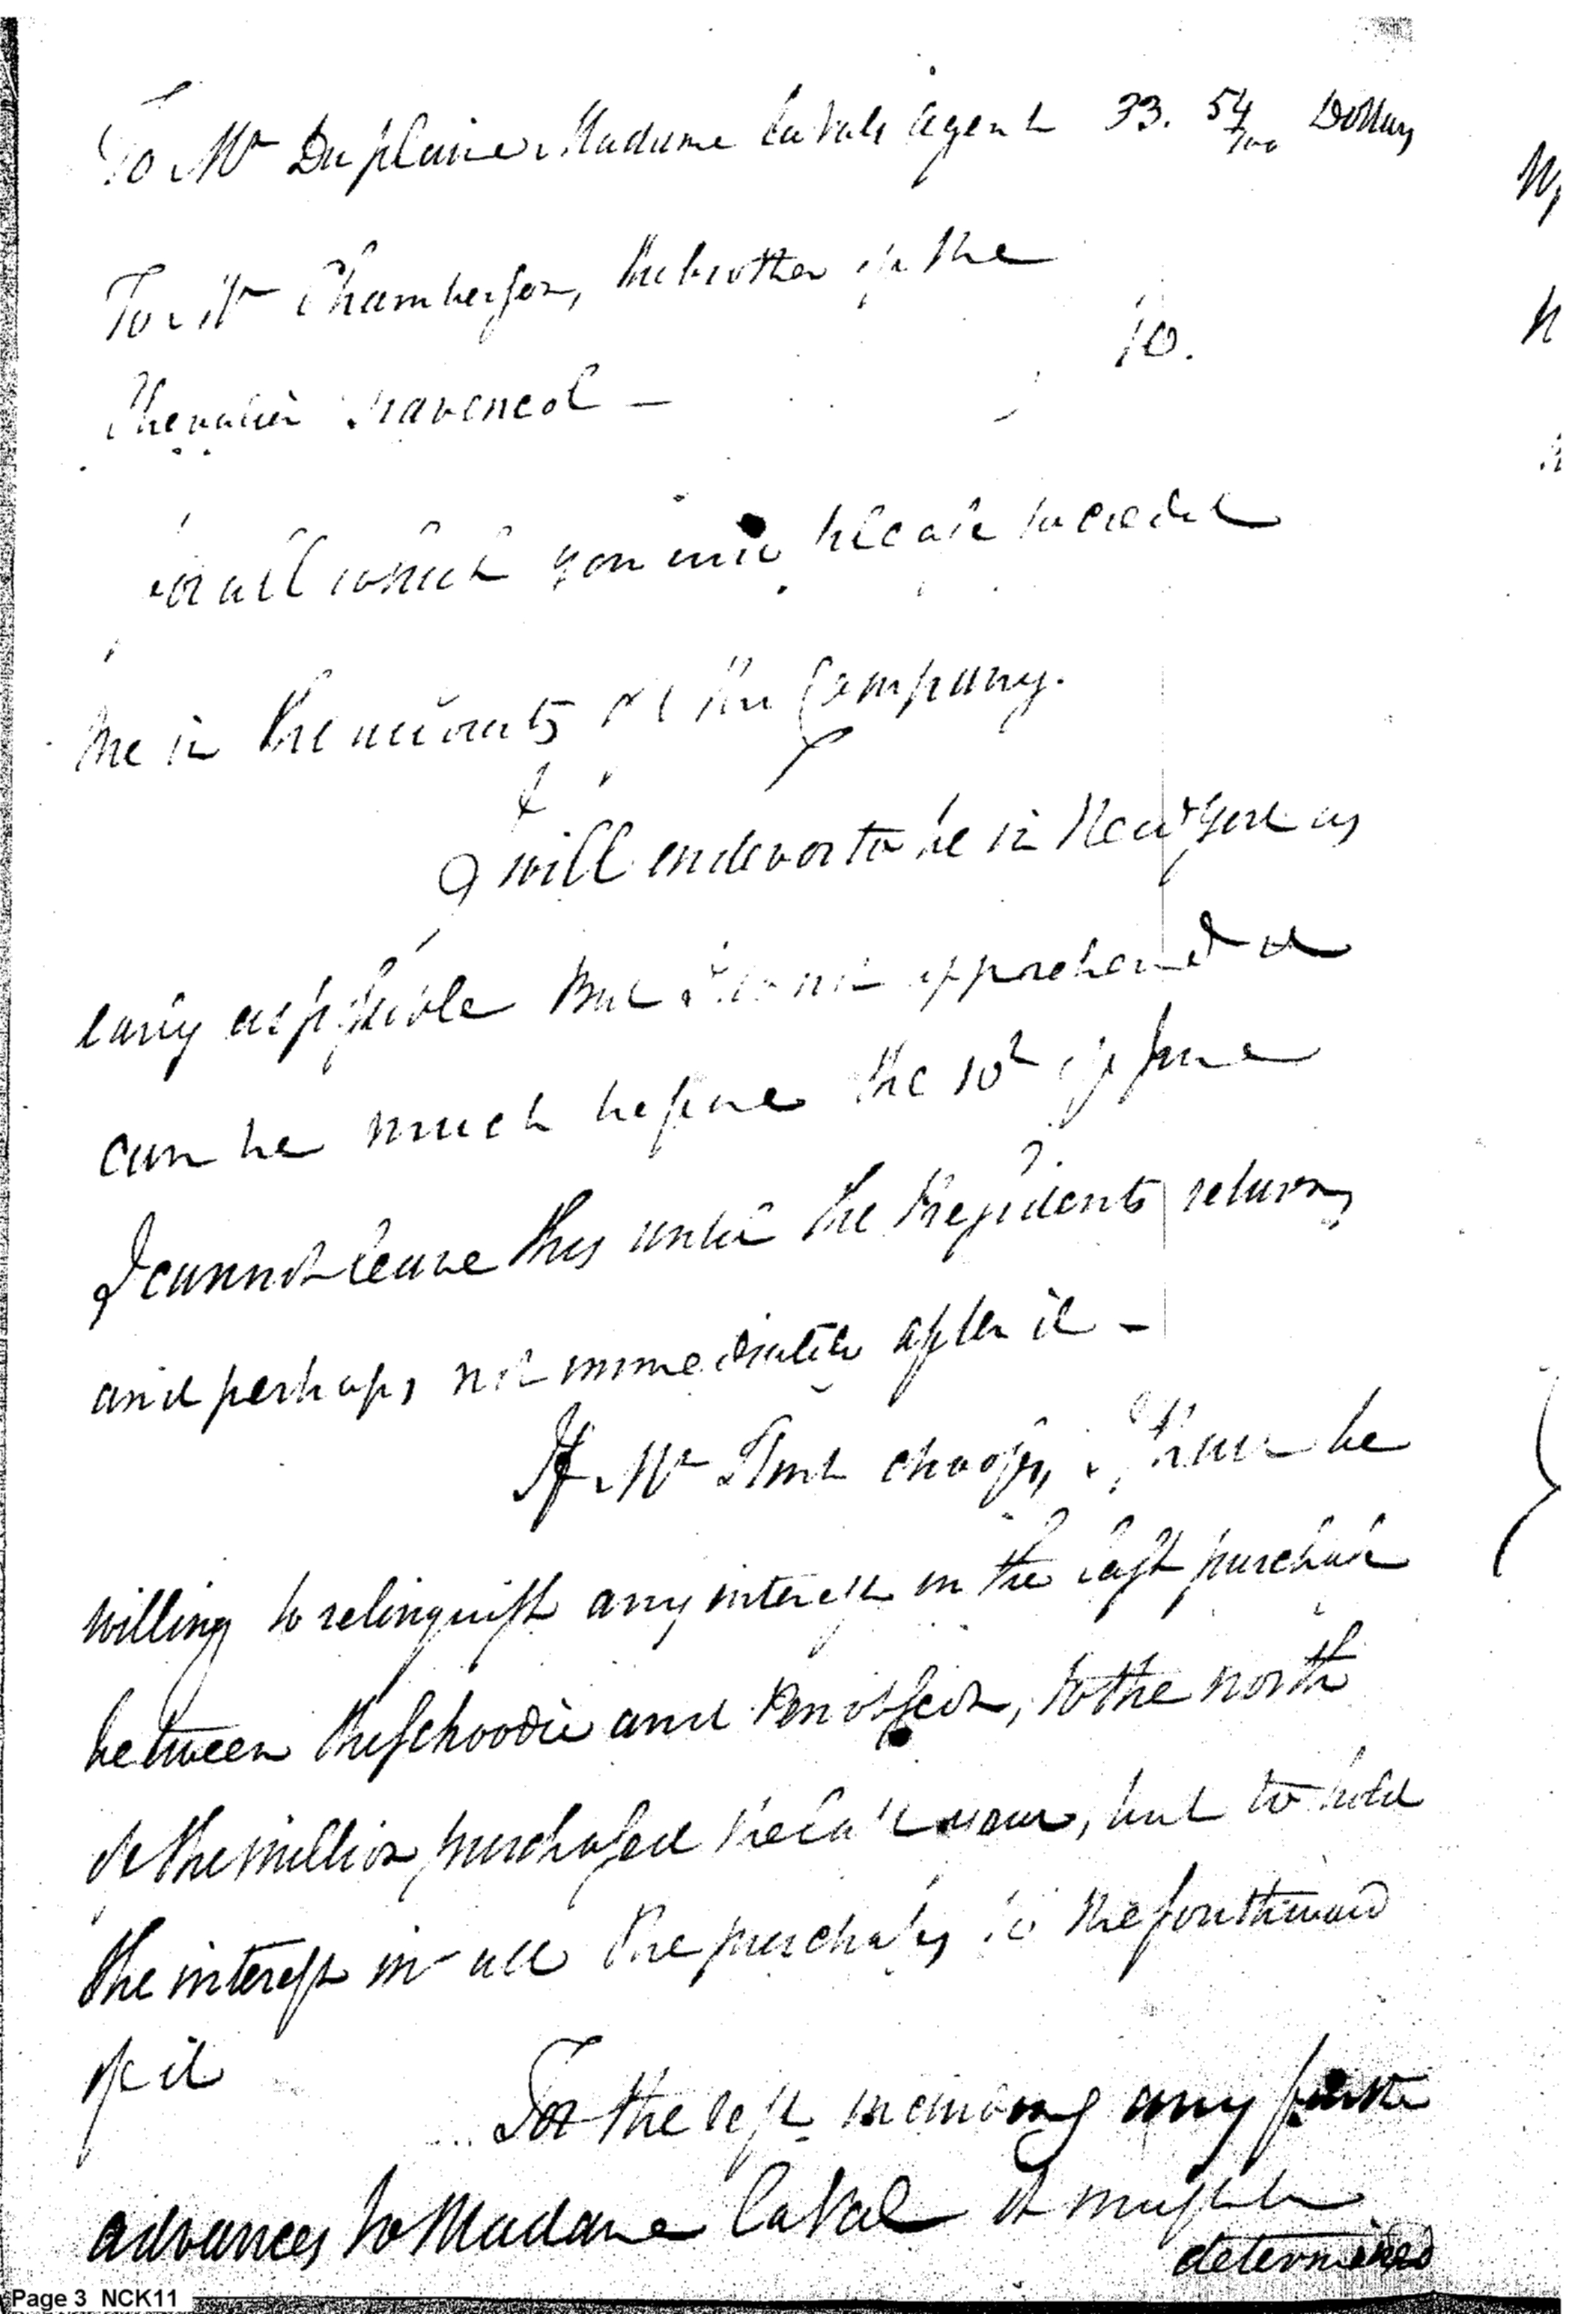 To Mr Duplaine Madame Lavals agent 33. 54/100 Dollars
To Mr Chamberson, the brother of the
10.
Chevalier
for all which you will please to credit
me in the accounts of the Company.
I will endevor to be in New York as
early as possible But I do not apprehend it
can be much before the 10th of June
I cannot leave this until the Presidents return,
and perhaps, not immediately after it —
If Mr Flint chooses, I shall be
willing to relinquish any interest in the last purchase
between the Schoodic and Penobscot, to the north
of the million purchased the last year, but to hold
the interest in all the purchases to the southward
of it
For the rest including any further
advances to Madame LaVal it must be
determined
Page 3 NCK11